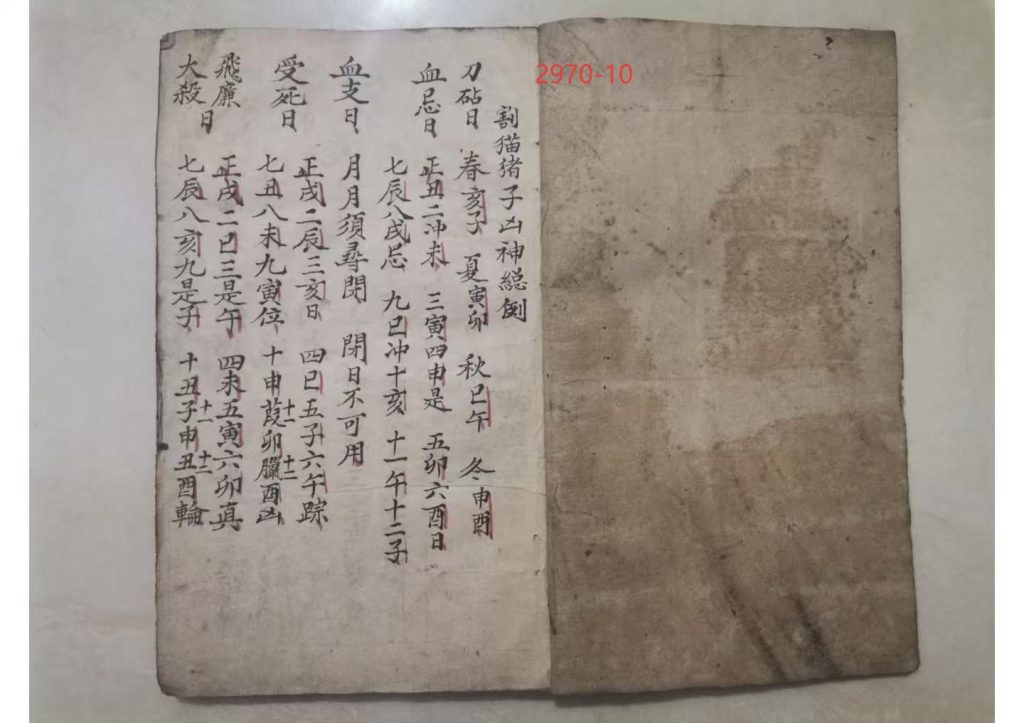 2970-10
割猫猪子凶神総例
刀砧日 春亥子 夏寅卯 秋巳午 冬申酉
血忌日 正丑二冲未 三寅四申是 五卯六酉日
七辰八戌忌 九巳冲十亥 十一午十二子
血支日 月月須尋閉 閉日不可用
受死日 正戌二辰三亥日 四巳五子六午踪
七丑八未九寅位 十申葭十一卯臘十二酉凶
飛廉大殺日 正戌二巳三是午 四未五寅六卯真
七辰八亥九是子 十丑子十一申丑十二酉輪